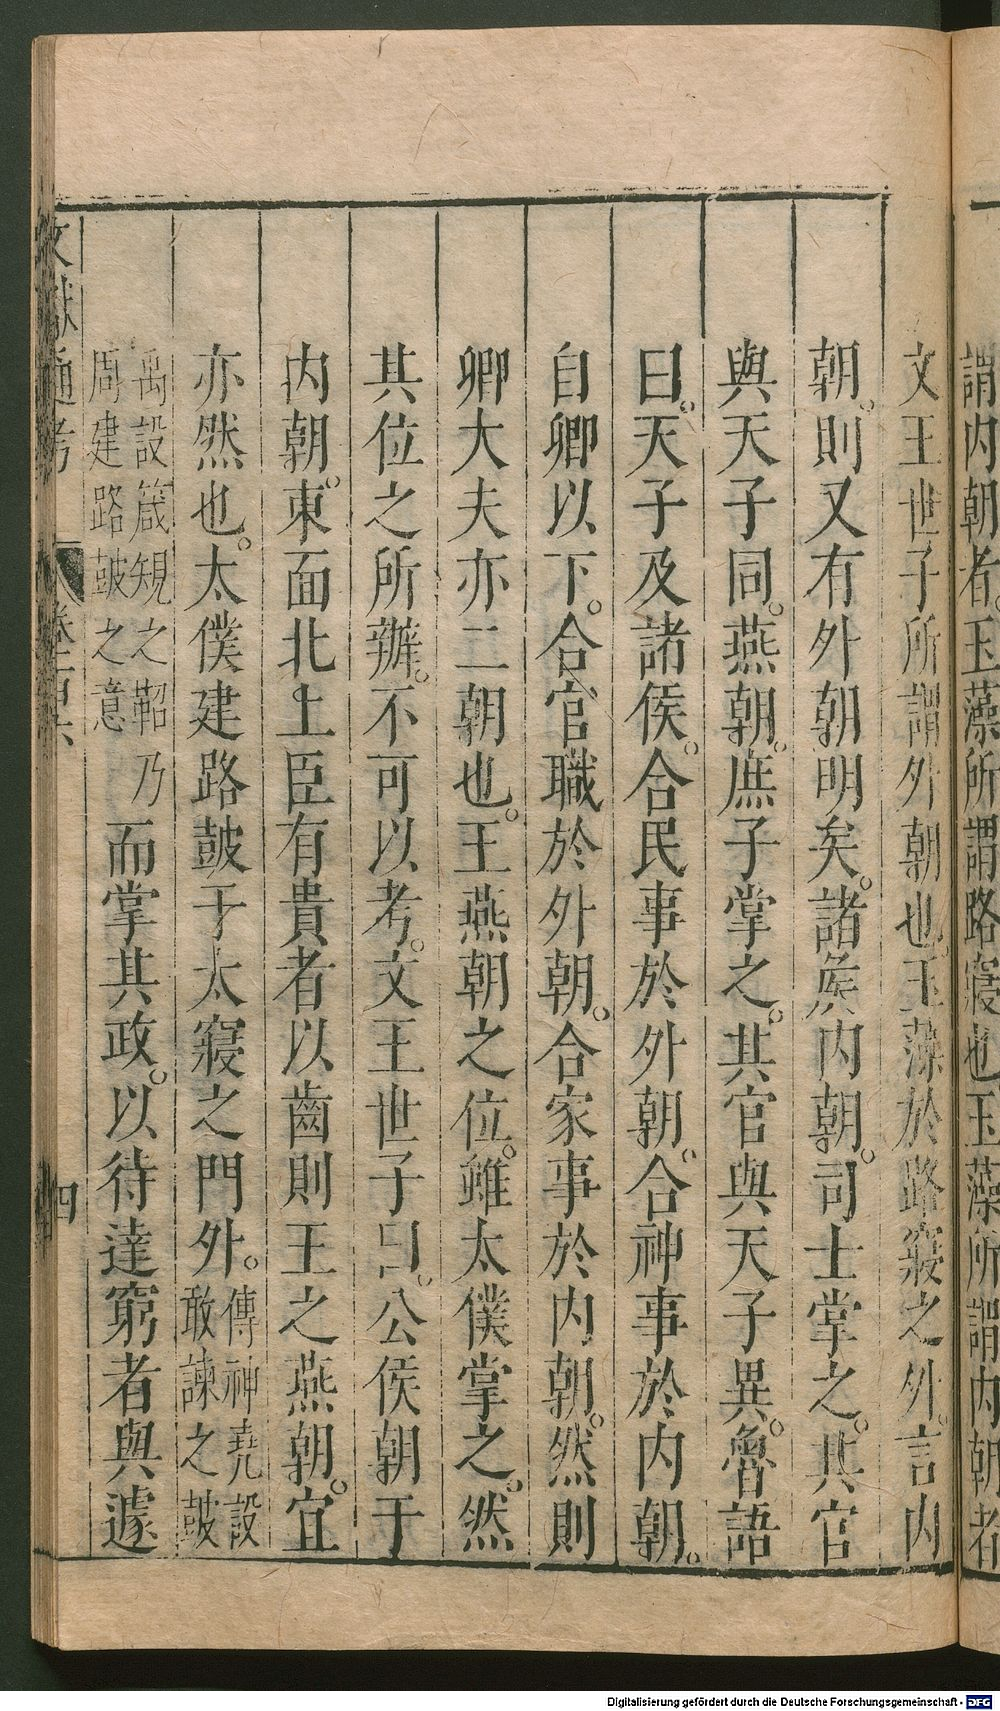 謂内朝者玉藻所謂路寢也玉藻所謂内朝者
文王世子所謂外朝也玉藻於路寢之外言内
朝。則又有外朝明矣。諸侯内朝。司士掌之。其官
與天子同。燕朝。庶子掌之。其官與天子異。魯語
曰。天子及諸侯。合民事於外朝。合神事於内朝。
自卿以下。合官職於外朝。合家事於内朝。然則
卿大夫亦二朝也。王燕朝之位。雖太僕掌之。然
其位之所辨。不可以考。文王世子曰。公侯朝于
内朝。東面北上臣有貴者以齒則王之燕朝。宜
亦然也。太僕建路鼓于太寢之門外。傳神堯設敢諫之鼓
禹設箴規之鞀乃周建路鼓之意而掌其政。以待達窮者與遽
文獻通考 卷一百六 四
Digitalisierung gefördert durch die Deutsche Forschungsgemeinschaft - DFG